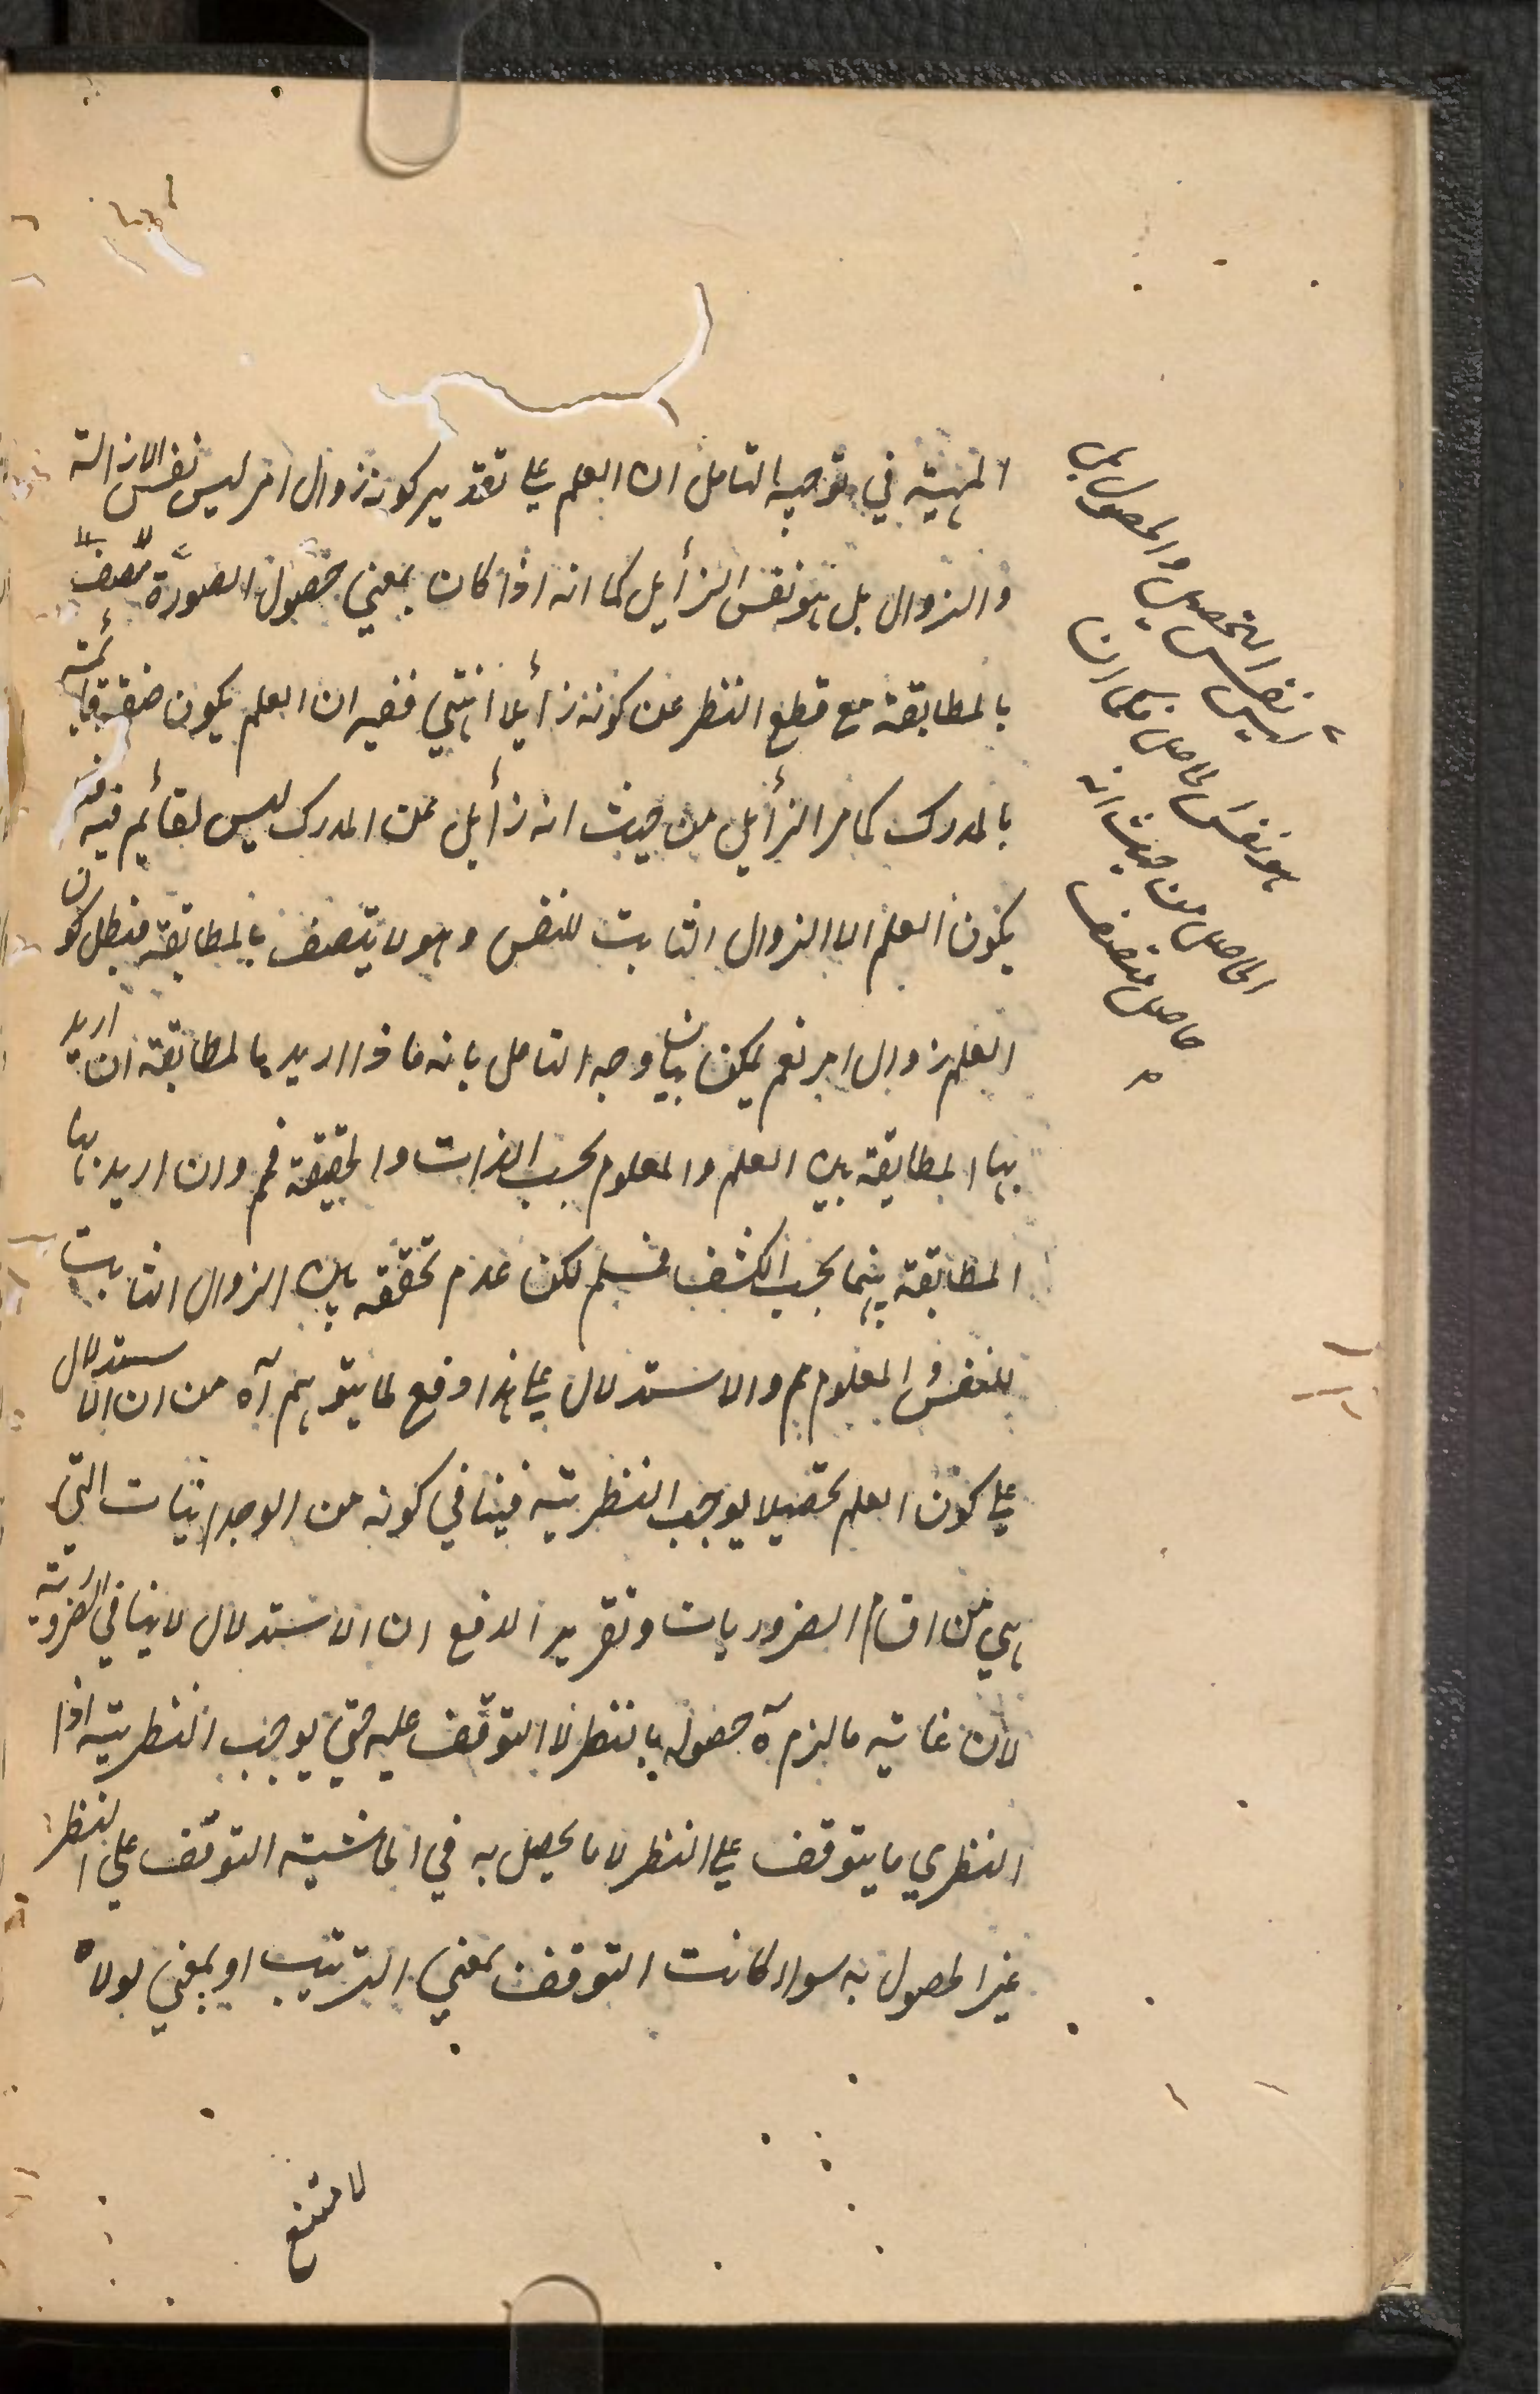 المنهية في توجيه التامل ان العلم على تقدير كونه زوال امر ليس نفس الازالة
والزوال بل هو نفس الزأيل كما انه اذا كان بمعنى حصول الصورة متصف
بالمطابقة مع قطع النظر عن كونه زأيلا انتهى ففيه ان العلم يكون صفة قائمة
بالمدرك كما مر الزأيل من حيث انه زأيل عن المدرك ليس لقائم فيه فلا
يكون العلم الا الزوال الثابت للنفس وهو لا يتصف بالمطابقة فبطل كون
العلم زوال امر نعم يمكن بيان وجه التامل بانه ماذا اريد بالمطابقة ان اريد
بها المطابقة بين العلم والمعلوم بحسب الذات والحقيقة فمم وان اريد بها
المطابقة بينهما بحسب الكشف فمسلم لكن عدم تحققه بين الزوال الثابت
للنفس والمعلوم مم والاستدلال على هذا دفع لما يتوهم آه من ان الاستدلال
على كون العلم تحصيلا يوجب النظرية فينافي كونه من الوجدانيات التي
هي من اقسام الضروريات وتقرير الدفع ان الاستدلال لا ينافي الضرورية
لان غاية ما لزم آه حصوله بالنظر لا التوقف عليه حتى يوجب النظرية اذ
النظري ما يتوقف على النظر لا ما يحصل به في الحاشية التوقف على النظر
غير الحصول به سواء كانت التوقف بمعنى الترتيب او بمعنى لولاه
لامتنع
ليس نفس التحصيل والحصول بل
هو نفس الحاصل فكما ان
الحاصل من حيث انه
حاصل متصف